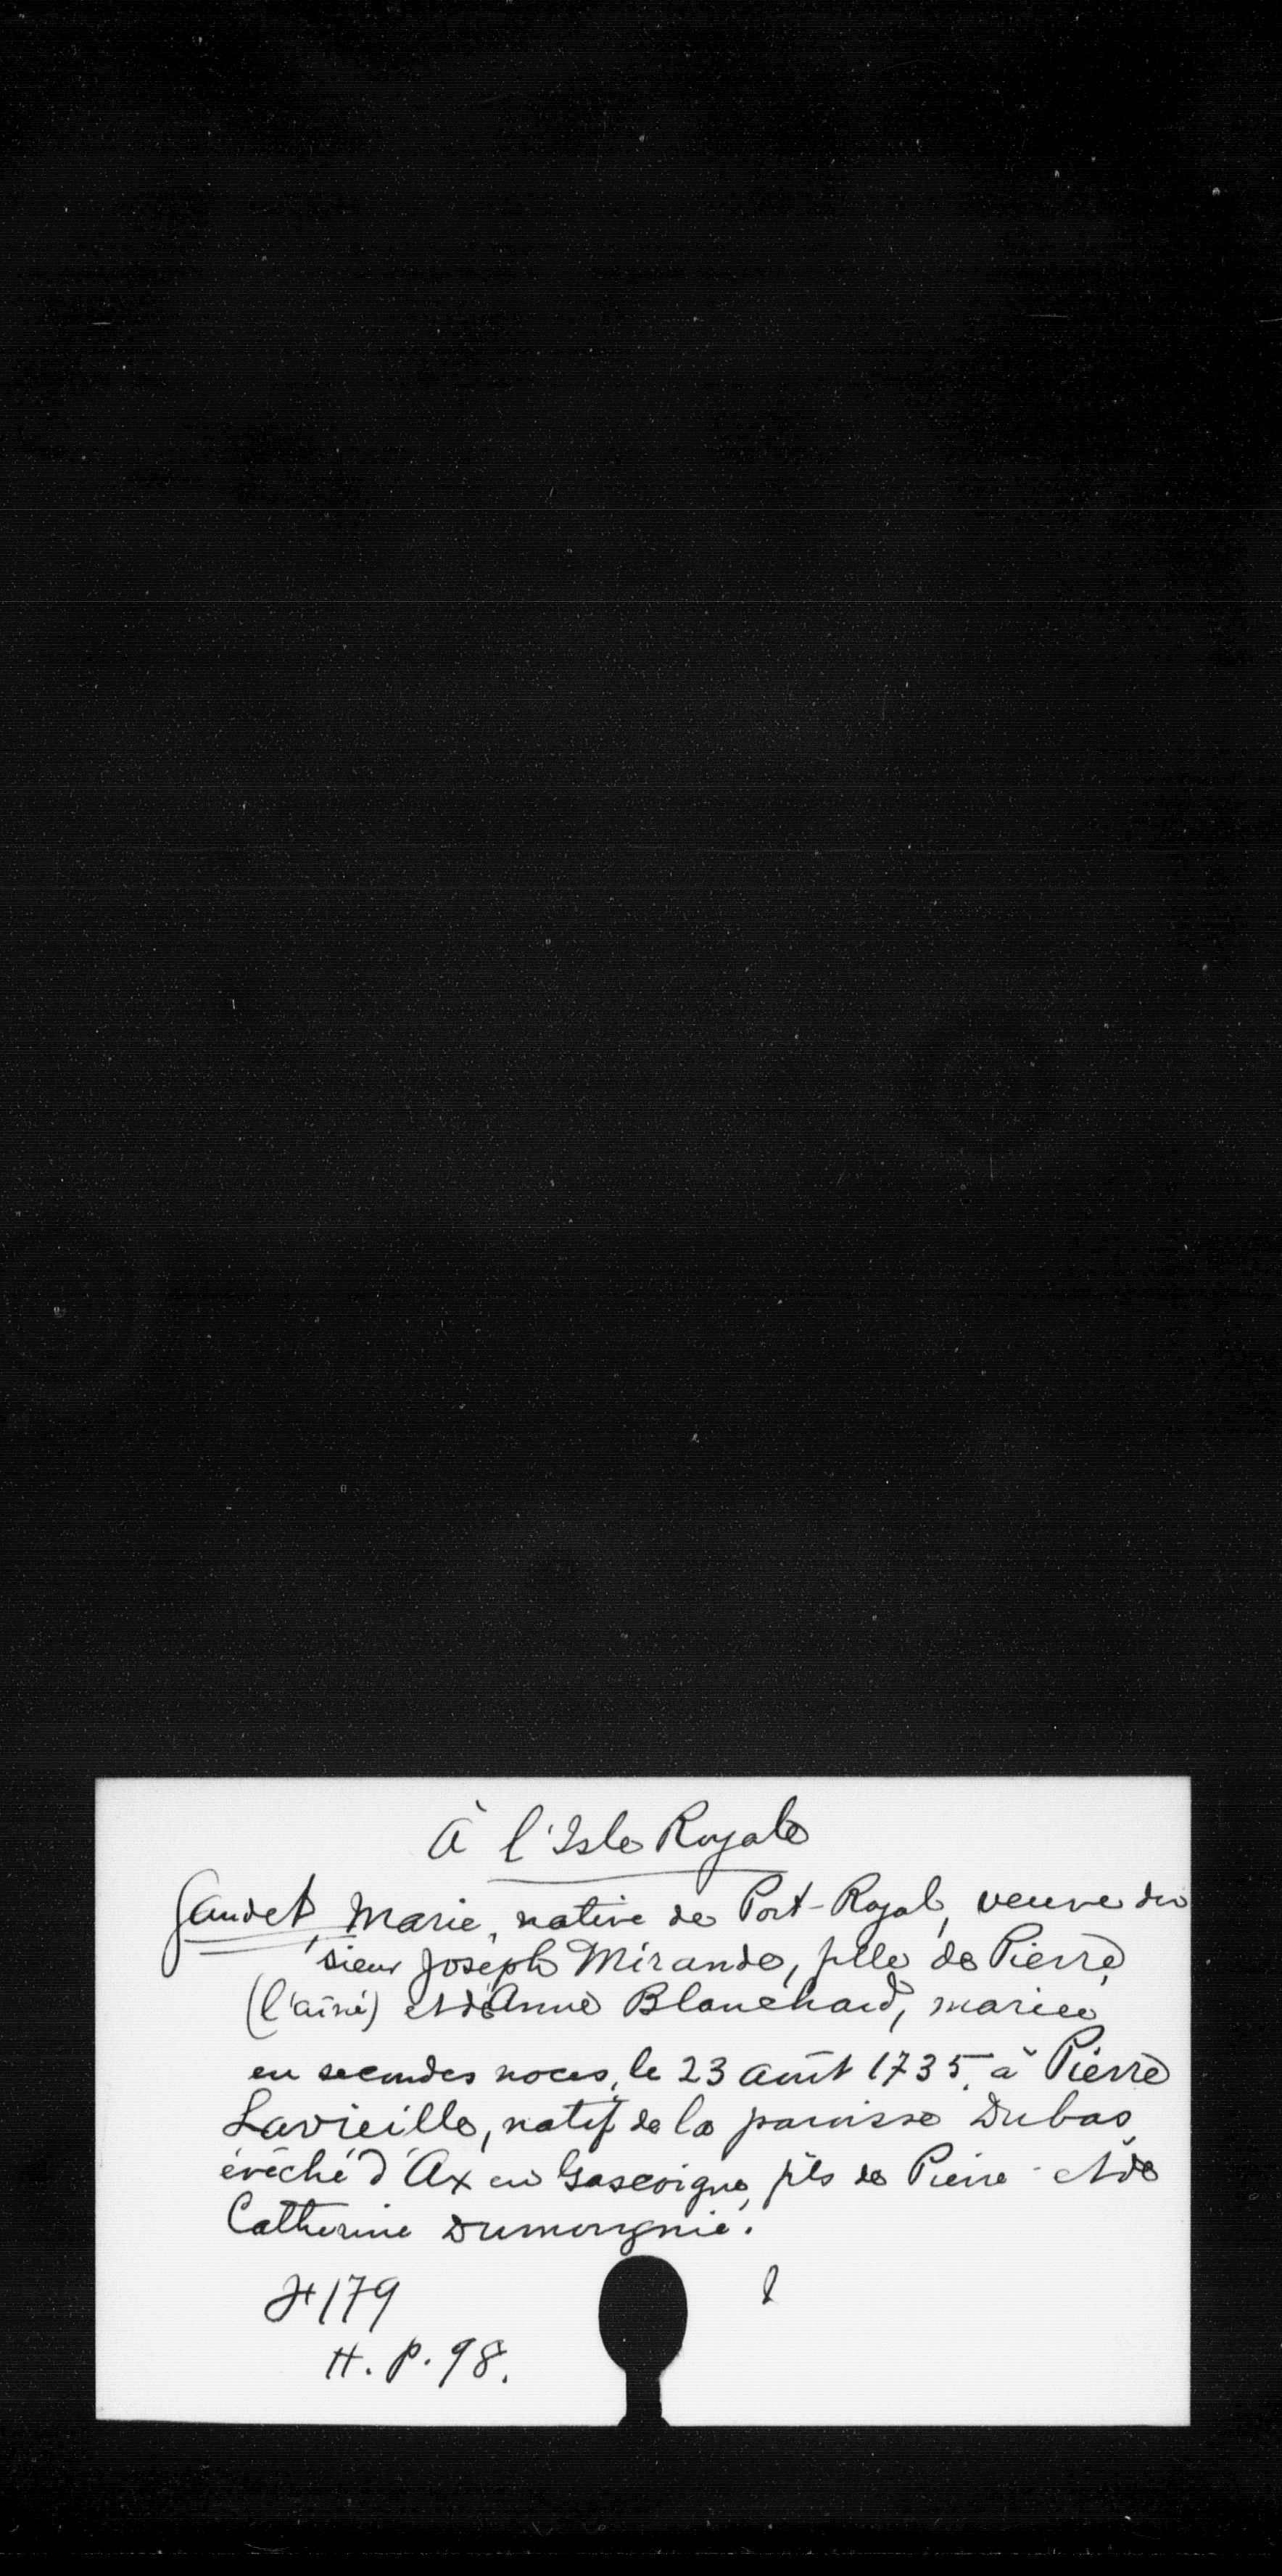 À l'Isle Royale
Gaudet, Marie, native de Port-Royal, veuve du
sieur Joseph Mirande, fille de Pierre
(l'aîné) et d'Anne Blanchard, mariée
en secondes noces, le 23 août 1735, à Pierre
Lavieille, natif de la paroisse Dubas,
évêché d'Ax en Gascoigne, fils de Pierre et de
Catherine
179
H. P. 98.